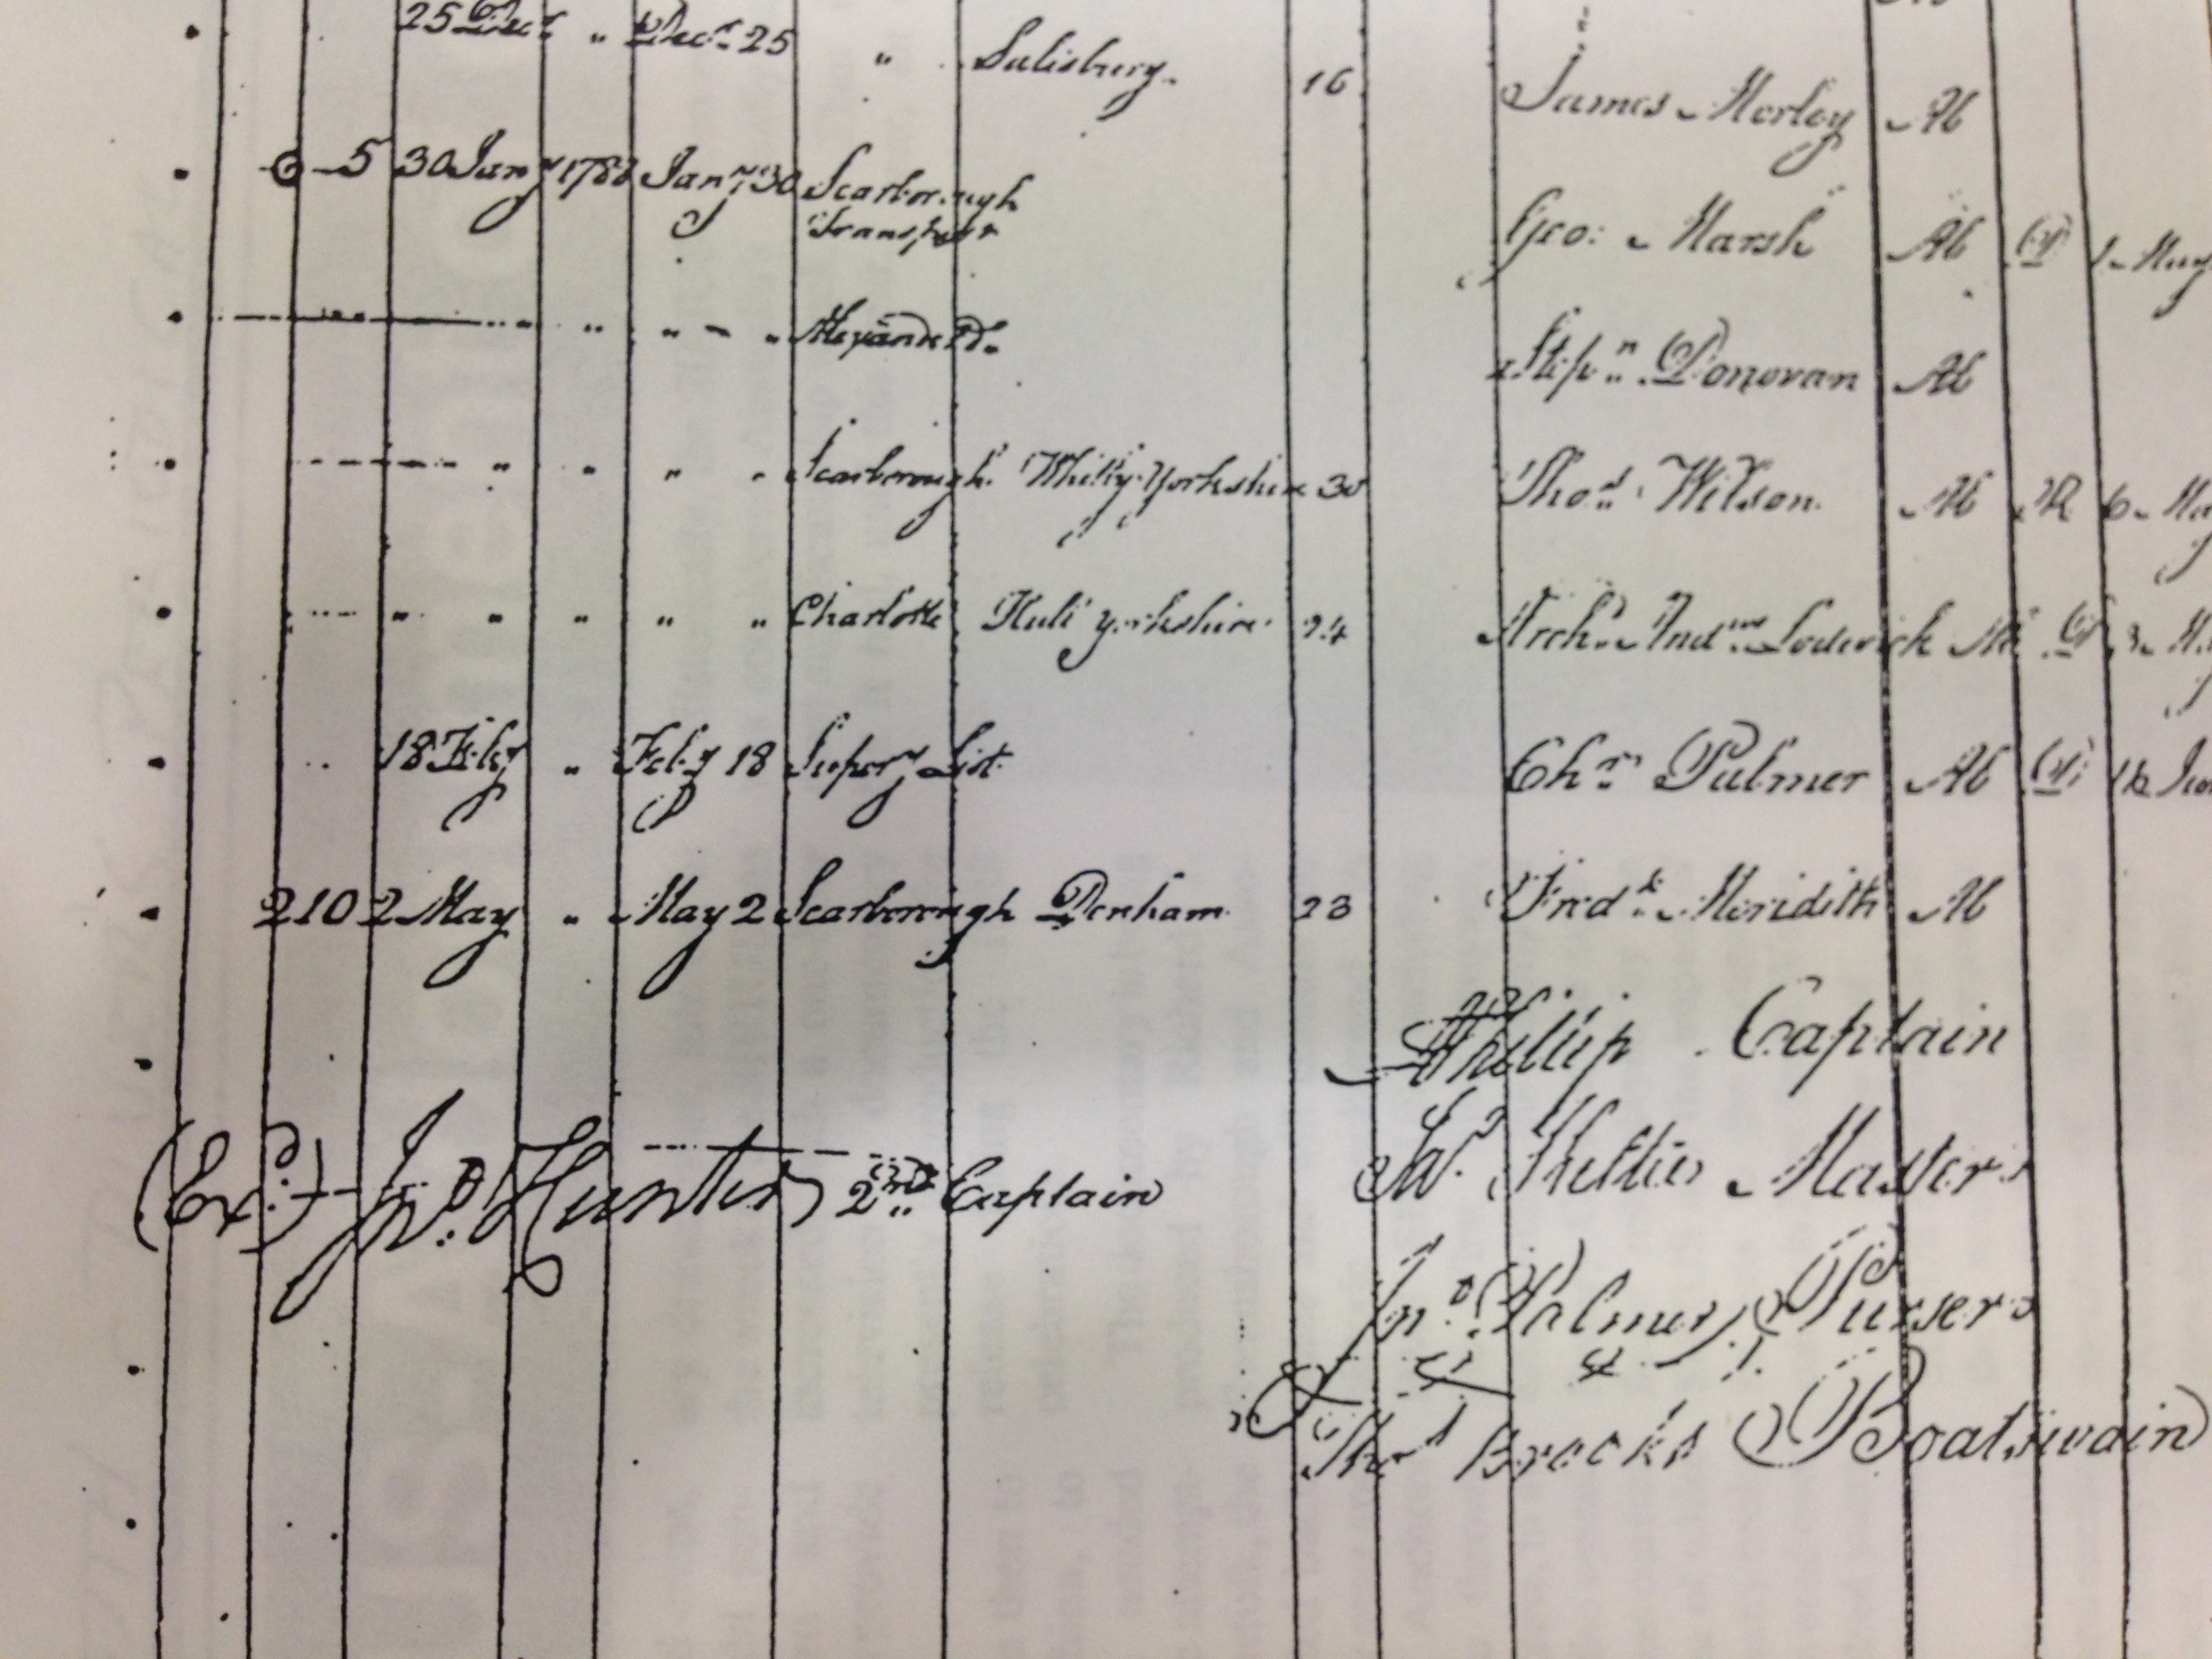 25 Decr " Decr 25 " Salisbury. 16 James Morley Ab
5 30 Jany 1788 Jany 30 Scarborough Transport Geo: Marsh Ab 1 May
" " " Alexander Stepn Donovan Ab
" " " " Scarborough Whitby Yorkshire 30 Thos Wilson Ab R 6 Ma
" " " " " Charlotte Hull yorkshire 24 Archd Andw Lodewick Ab 3 M
18 Feby " Feby 18 Supery List Chr Palmer Ab
210 2 May " May 2 Scarborough Denham 23 Fredk Meridith Ab
A Phillip Captain
(Exd) Jno Hunter 2nd Captain Master
Jno Palmer Purser
Thos Brooks Boatswain